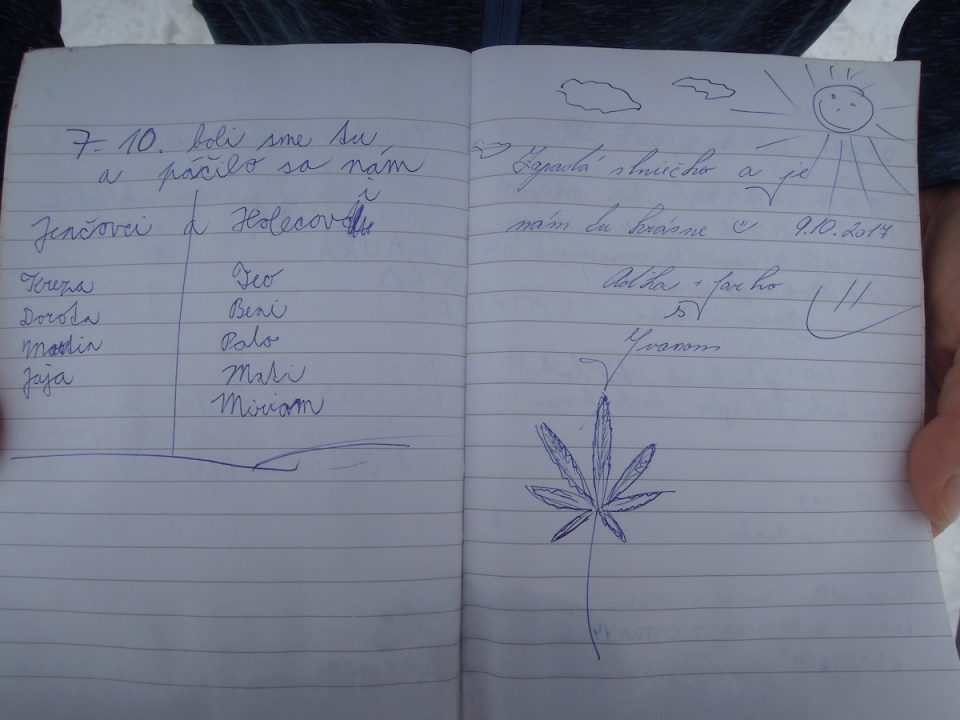 7. 10. boli sme tu
a páčilo sa nám
Jenčovci a Holecovci
Tereza
Dorota
Martin
Jaja
Teo
Beni
Palo
Mati
Miriam
Zapadá slniečko a je
nám tu krásne 9.10.2017
Jarko